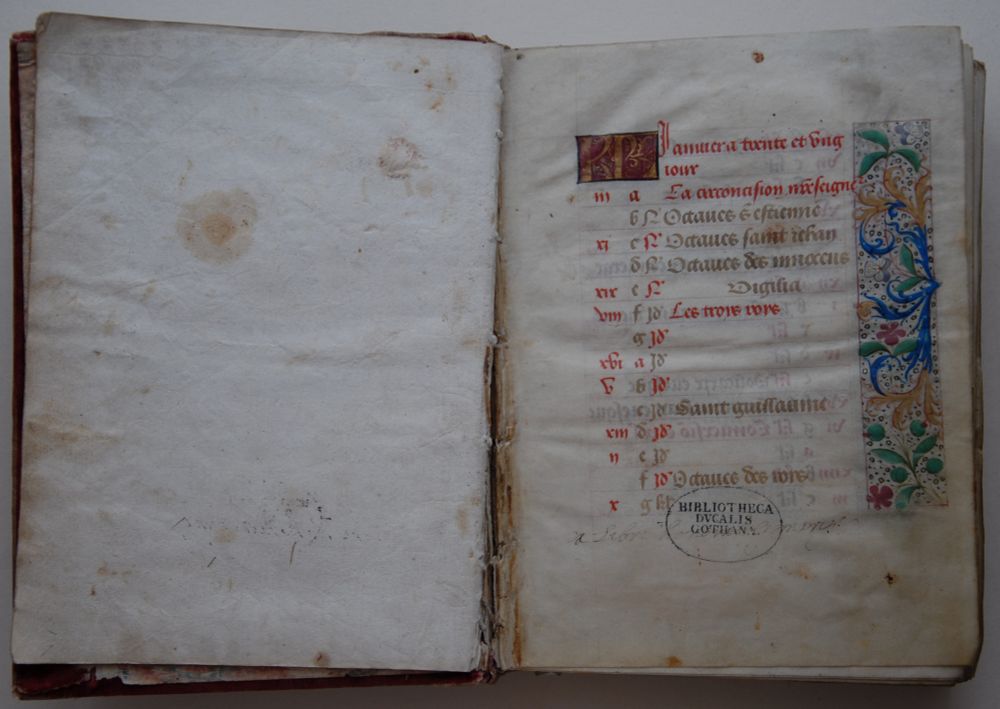 KL Januier a trente et vng
iour
iii a La circoncision nreseigne
b N Octaues s estienne
xi c N Octaues saint iehan
d N Octaues des innocens
xix e N Vigilia
viii f N Les troys roys
g Id
xvi a Id
v b Id
c Id Saint guillaume
xiii d Id
ii e Id
f Id Octaues des roys
x g kl
BIBLIOTHECA
DVCALIS
GOTHANA